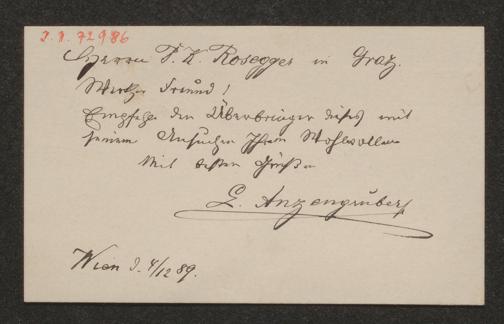 I.N. 72986
Herrn P. K. Rosegger in Graz.
Werther Freund!
Empfehle den Überbringer dieses mit
seinem Ansuchen Ihrem Wohlwollen
Mit besten Grüßen
L. Anzengruber
Wien d. 4/12 89.